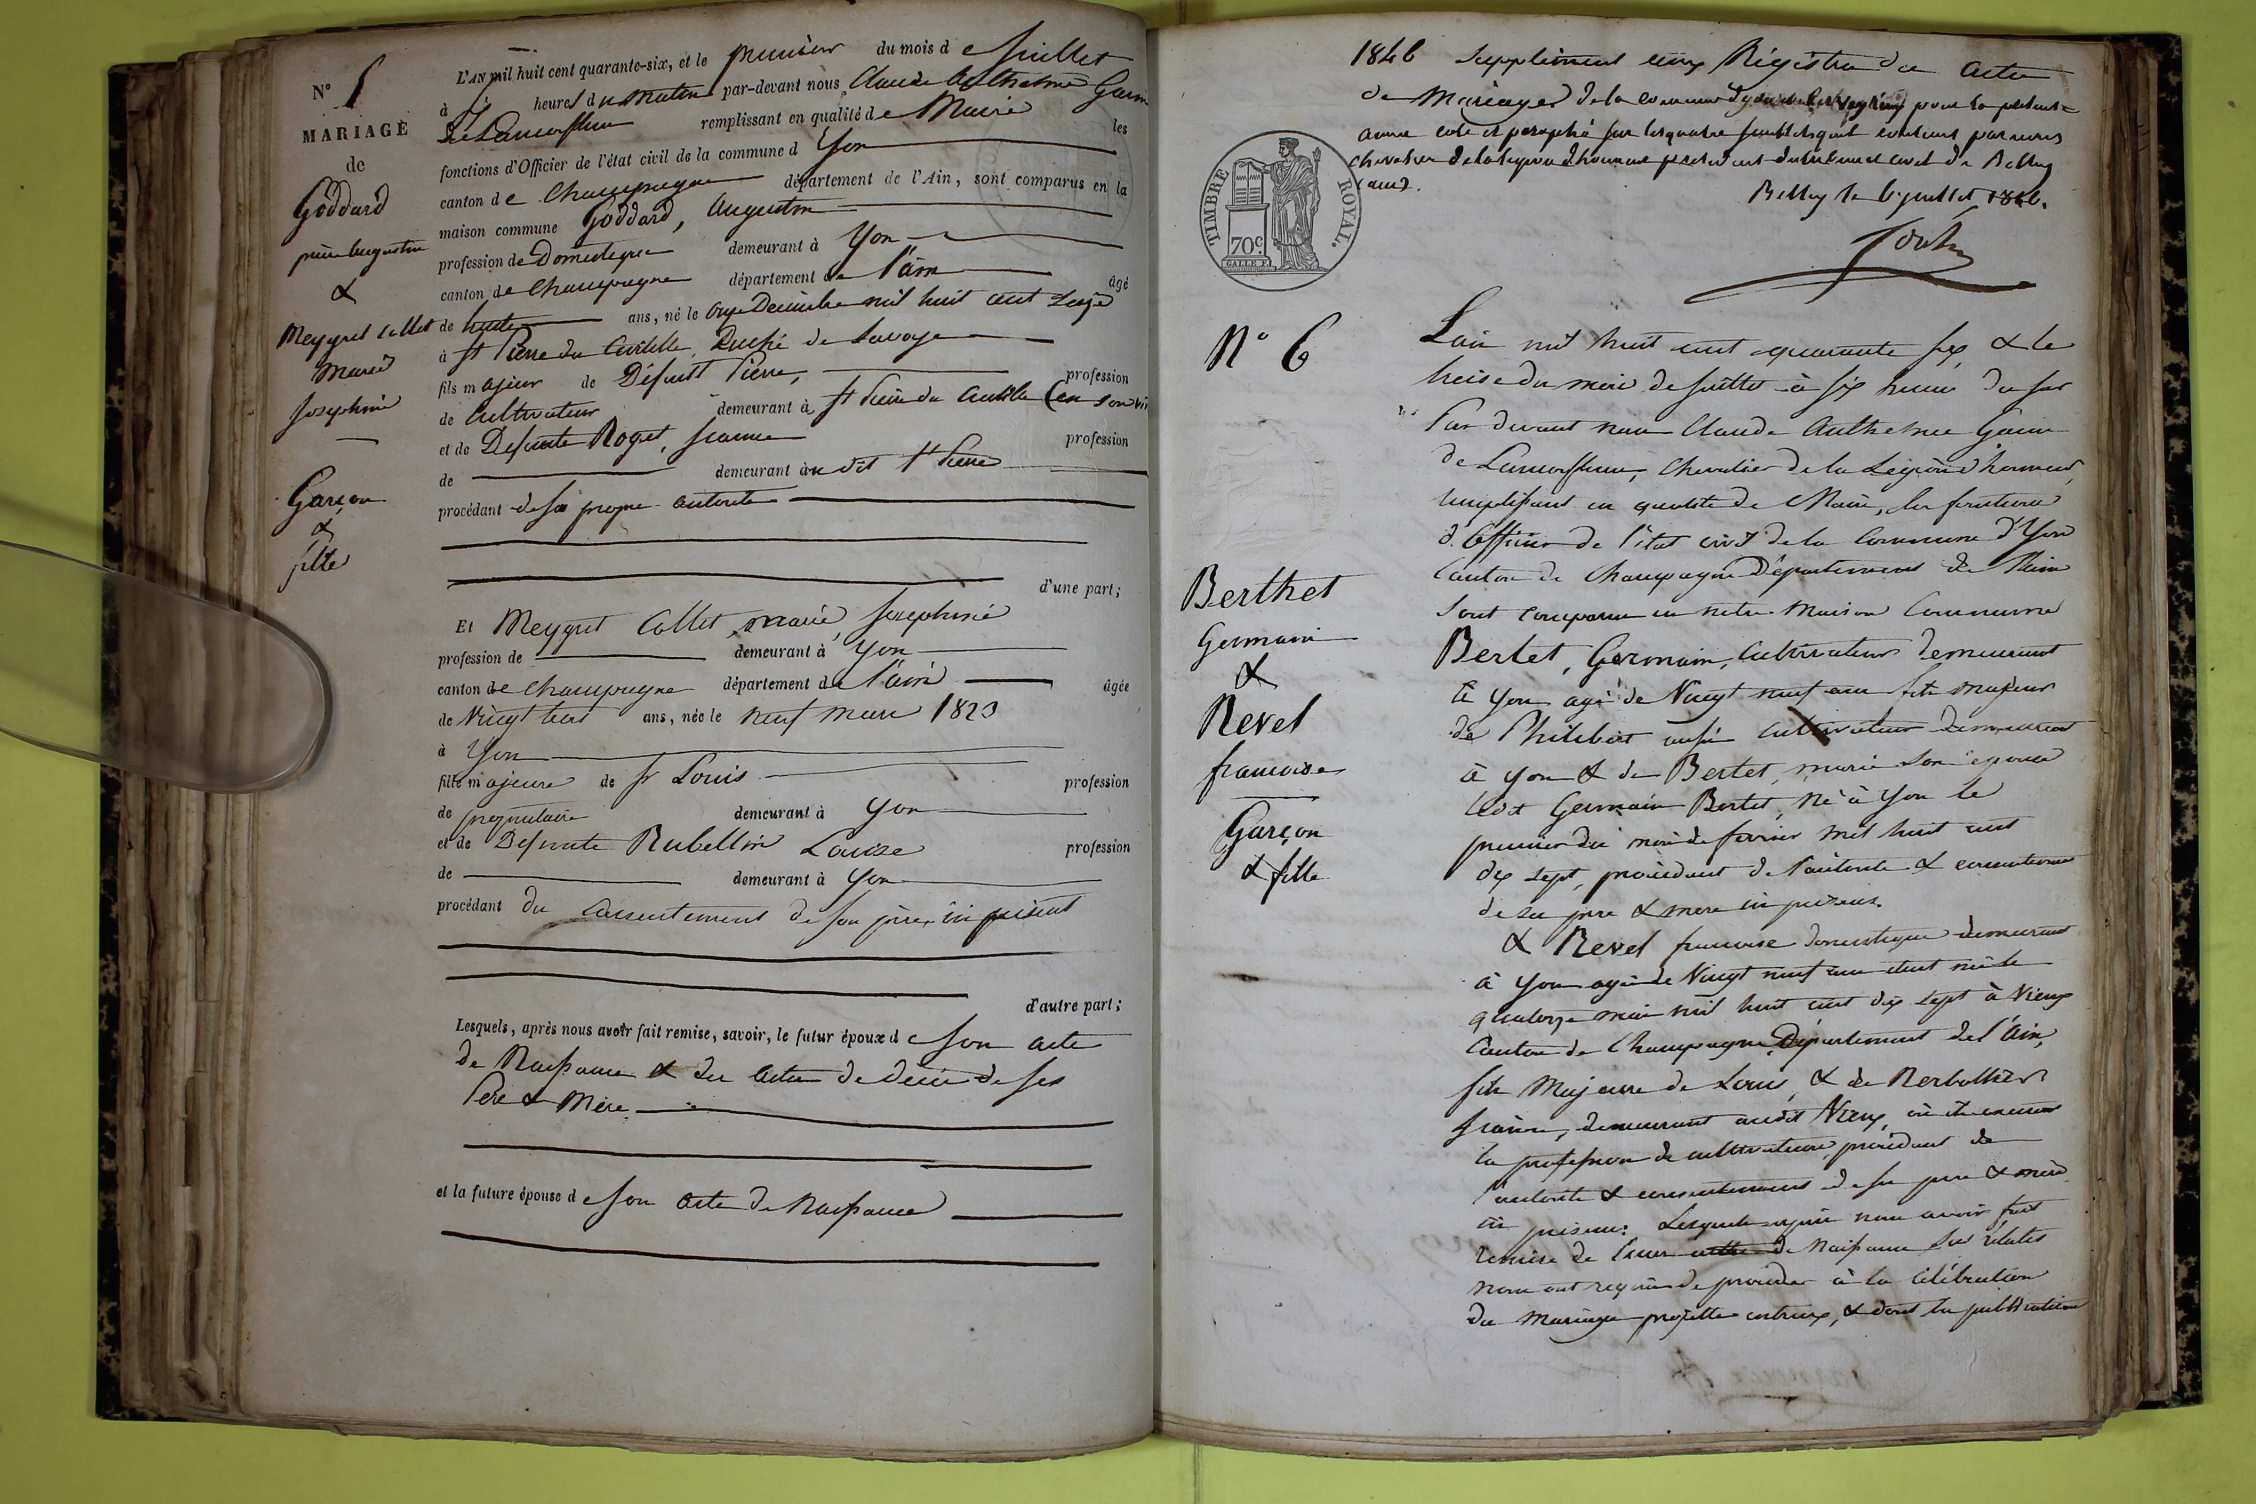 N° 5
MARIAGE
de
Goddard
Augustin
&
Meygret Collet
Marie
Josephine
Garçon
&
fille
L'AN mil huit cent quarante-six, et le premier du mois de Juillet
à heures du matin par-devant nous Claude Anthelme
remplissant en qualité de Maire les
fonctions d'Officier de l'état civil de la commune d Yon
canton de Champagne département de l'Ain, sont comparus en la
maison commune Goddard, Augustin
profession de Domestique demeurant à Yon
canton de Champagne département de l'ain âgé
de ans, né le onze Decembre mil huit cent seize
à St Pierre de Duché de Savoye
fils majeur de Défunt Pierre, profession
de Cultivateur demeurant à St Pierre de (en son
et de Defunte Roget, Jeanne profession
de demeurant au dit St Pierre
procédant de sa propre autorité
d'une part;
Et Meygret Collet, marie Josephine
profession de demeurant à Yon
canton de Champagne département de l'ain âgée
de vingt trois ans, née le neuf mars 1823
à Yon
fille majeure de Sr Louis profession
de propriétaire demeurant à Yon
et de Defunte Rubellin Louise profession
de demeurant à Yon
procédant du consentement de son père, ici présent
d'autre part;
Lesquels, après nous avoir fait remise, savoir, le futur époux de son acte
de Naissance & des actes de décès de ses
Père & Mère
et la future épouse de son acte de Naissance
1846 Supplément aux Régistre des actes
de Mariages de la commune pour la présente
année coté et paraphé par
chevalier de la légion d'honneur président du tribunal civil de Belley
(ain).
Belley le 6 juillet 1846.
TIMBRE ROYAL.
70c
N° 6
Berthet
Germain
&
Revel
francoise
Garçon
& fille
L'an mil huit cent quarante six & le
treize du mois de Juillet à six heures du soir
Par devant nous Claude Anthelme
de chevalier de la Légion d'honneur,
remplissant en qualité de Maire, les fonctions
d'officier de l'état civil de la commune d'Yon
Canton de Champagne Département de l'ain
Sont comparus en notre Maison Commune
Bertet, Germain, cultivateur demeurant
à Yon agé de Vingt neuf ans fils majeur
de Philibert aussi cultivateur demeurant
à Yon & de Bertet, marie son épouse
ledt Germain Bertet, Né à Yon le
premier du mois de fevrier mil huit cent
dix sept, procédant de l'autorité & consentement
de ses père & mere ici présens.
& Revel francoise domestique demeurant
à Yon agée de Vingt neuf ans étant née le
quatorze mai mil huit cent dix sept à Vieux
Canton de Champagne, Département de l'ain,
fille Majeure de Louis, & de
demeurant audit Vieux, où ils exercent
la profession de cultivateurs, procédant de
l'autorité & consentement de ses père & mère
ici présens: Lesquels après nous avoir fait
remise de leurs actes de Naissance
nous ont requis de procéder à la célébration
du mariage projetté entreux, & dont les publications